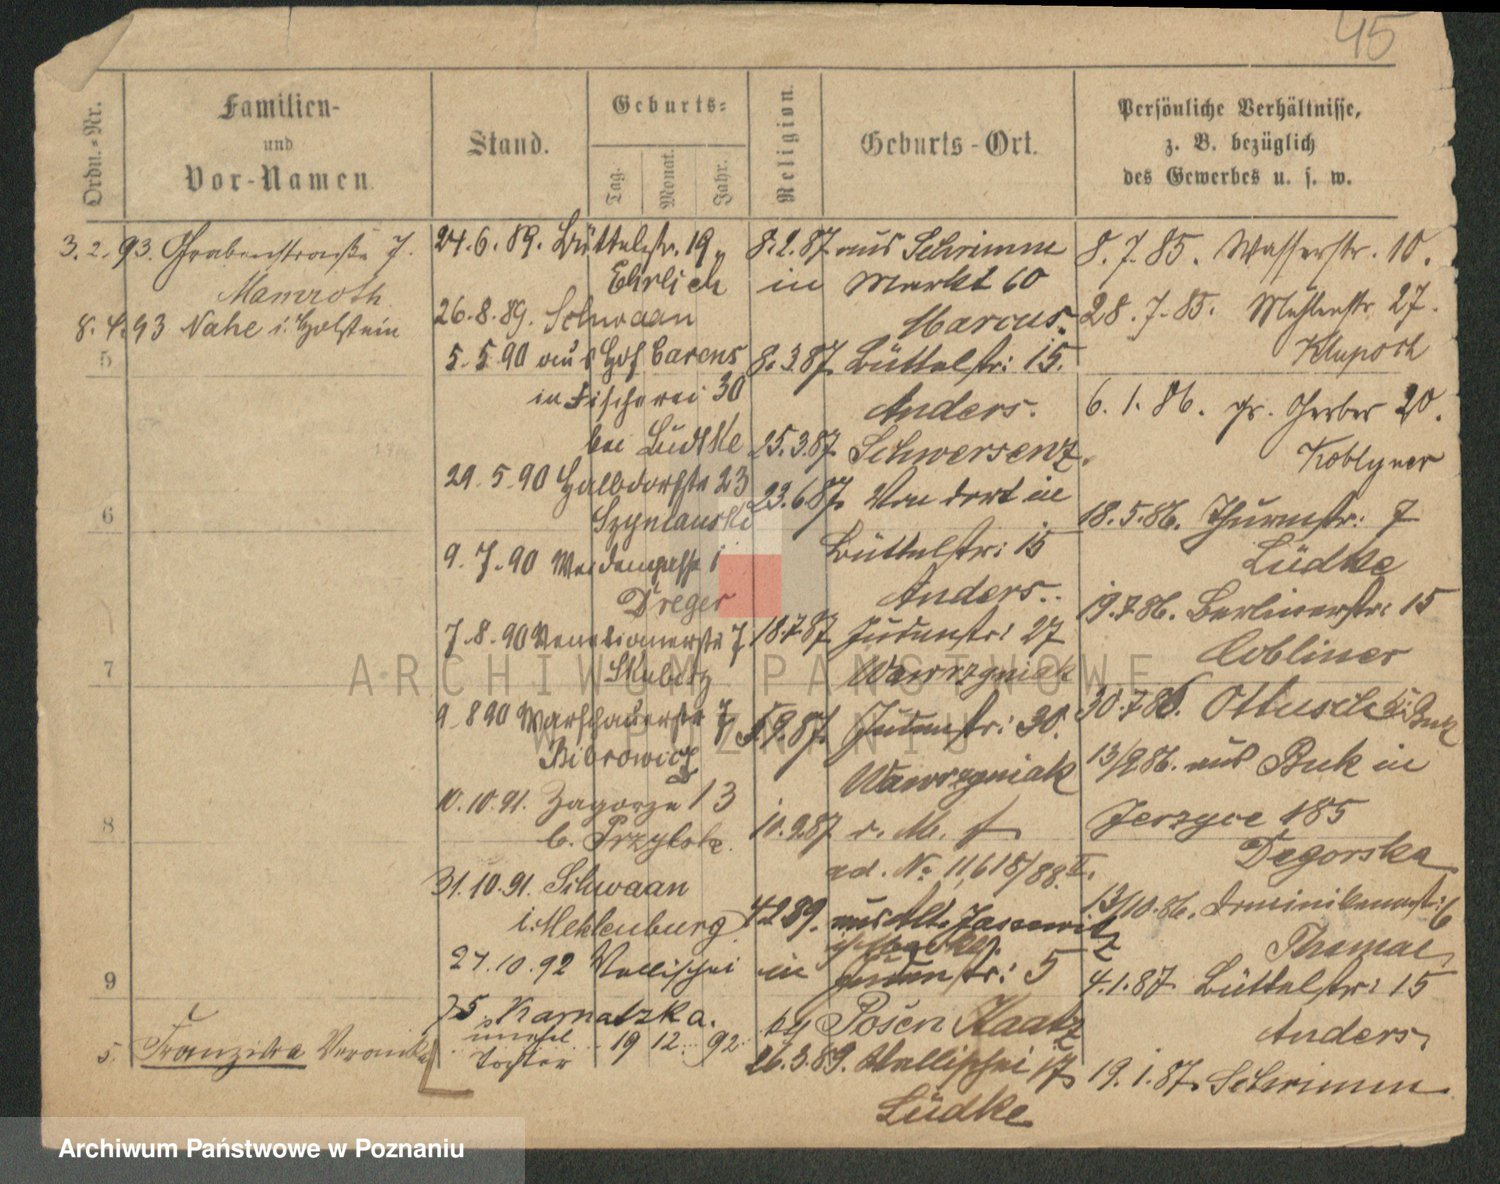 45
Ordn.-Nr.
Familien-
und
Vor-Namen.
Stand.
Geburts-
Tag.
Monat.
Jahr.
Religion.
Geburts-Ort.
Persönliche Verhältnisse,
z. B. bezüglich
des Gewerbes u. s. w.
3.2.93. Grabenstraße 7.
Mamroth
8.4.93 Nahe i. Holstein
5
6
7
8
9
5. Franziska Veronika
24.6.89. Büttelstr. 19,
Ehrlich
26.8.89. Schwaan
5.5.90 aus Hof Carens
in Fischerei 30
bei Lüdtke
29.5.90 Halbdorfstr 23
Szymanski
9.7.90 Weidengasse 1
Dreger
7.8.90 Venetianerstr 7
Skubitz
9.8.90 Warschauerstr
Bibrowicz
10.10.91. Zagorze 13
b. Przybok.
31.10.91. Schwaan
i. Meklenburg
27.10.92 Wallischei
75 Karnatzka.
unehel.
Tochter 19 12 92
8.2.87 aus Schrimm
in Markt 60
Marcus.
8.3.87 Büttelstr: 15.
Anders.
25.3.87. Schwersenz.
23.6.87. Von dort in
Büttelstr: 15
Anders.
18.7.87 Judenstr: 27
Wawrzyniak
9.87. Judenstr: 30.
Wawrzyniak
10.9.87 v. M. f
ad. No 11,618/88.II.
4.2.89. aus Alt
in Judenstr: 5
by Posen Kaatz
26.3.89. Wallischei 17
Lüdke
8.7.85. Wasserstr. 10.
28.7.85. Mühlenstr. 27.
Kluposch
6.1.86. gr. Gerber 20.
Koblyner
18.5.86. Thurmstr: 7
Lüdke
19.7.86. Berlinerstr: 15
Cobliner
30.7.86. Ottusch bei Buk
13/9.86. aus Buk in
Jerzyce 185
Degorska
13/10.86. Dominikanerstr: 6
Thomas
4.1.87 Büttelstr: 15
Anders,
19.1.87. Schrimm
ARCHIWUM PAŃSTWOWE
W POZNANIU
Archiwum Państwowe w Poznaniu